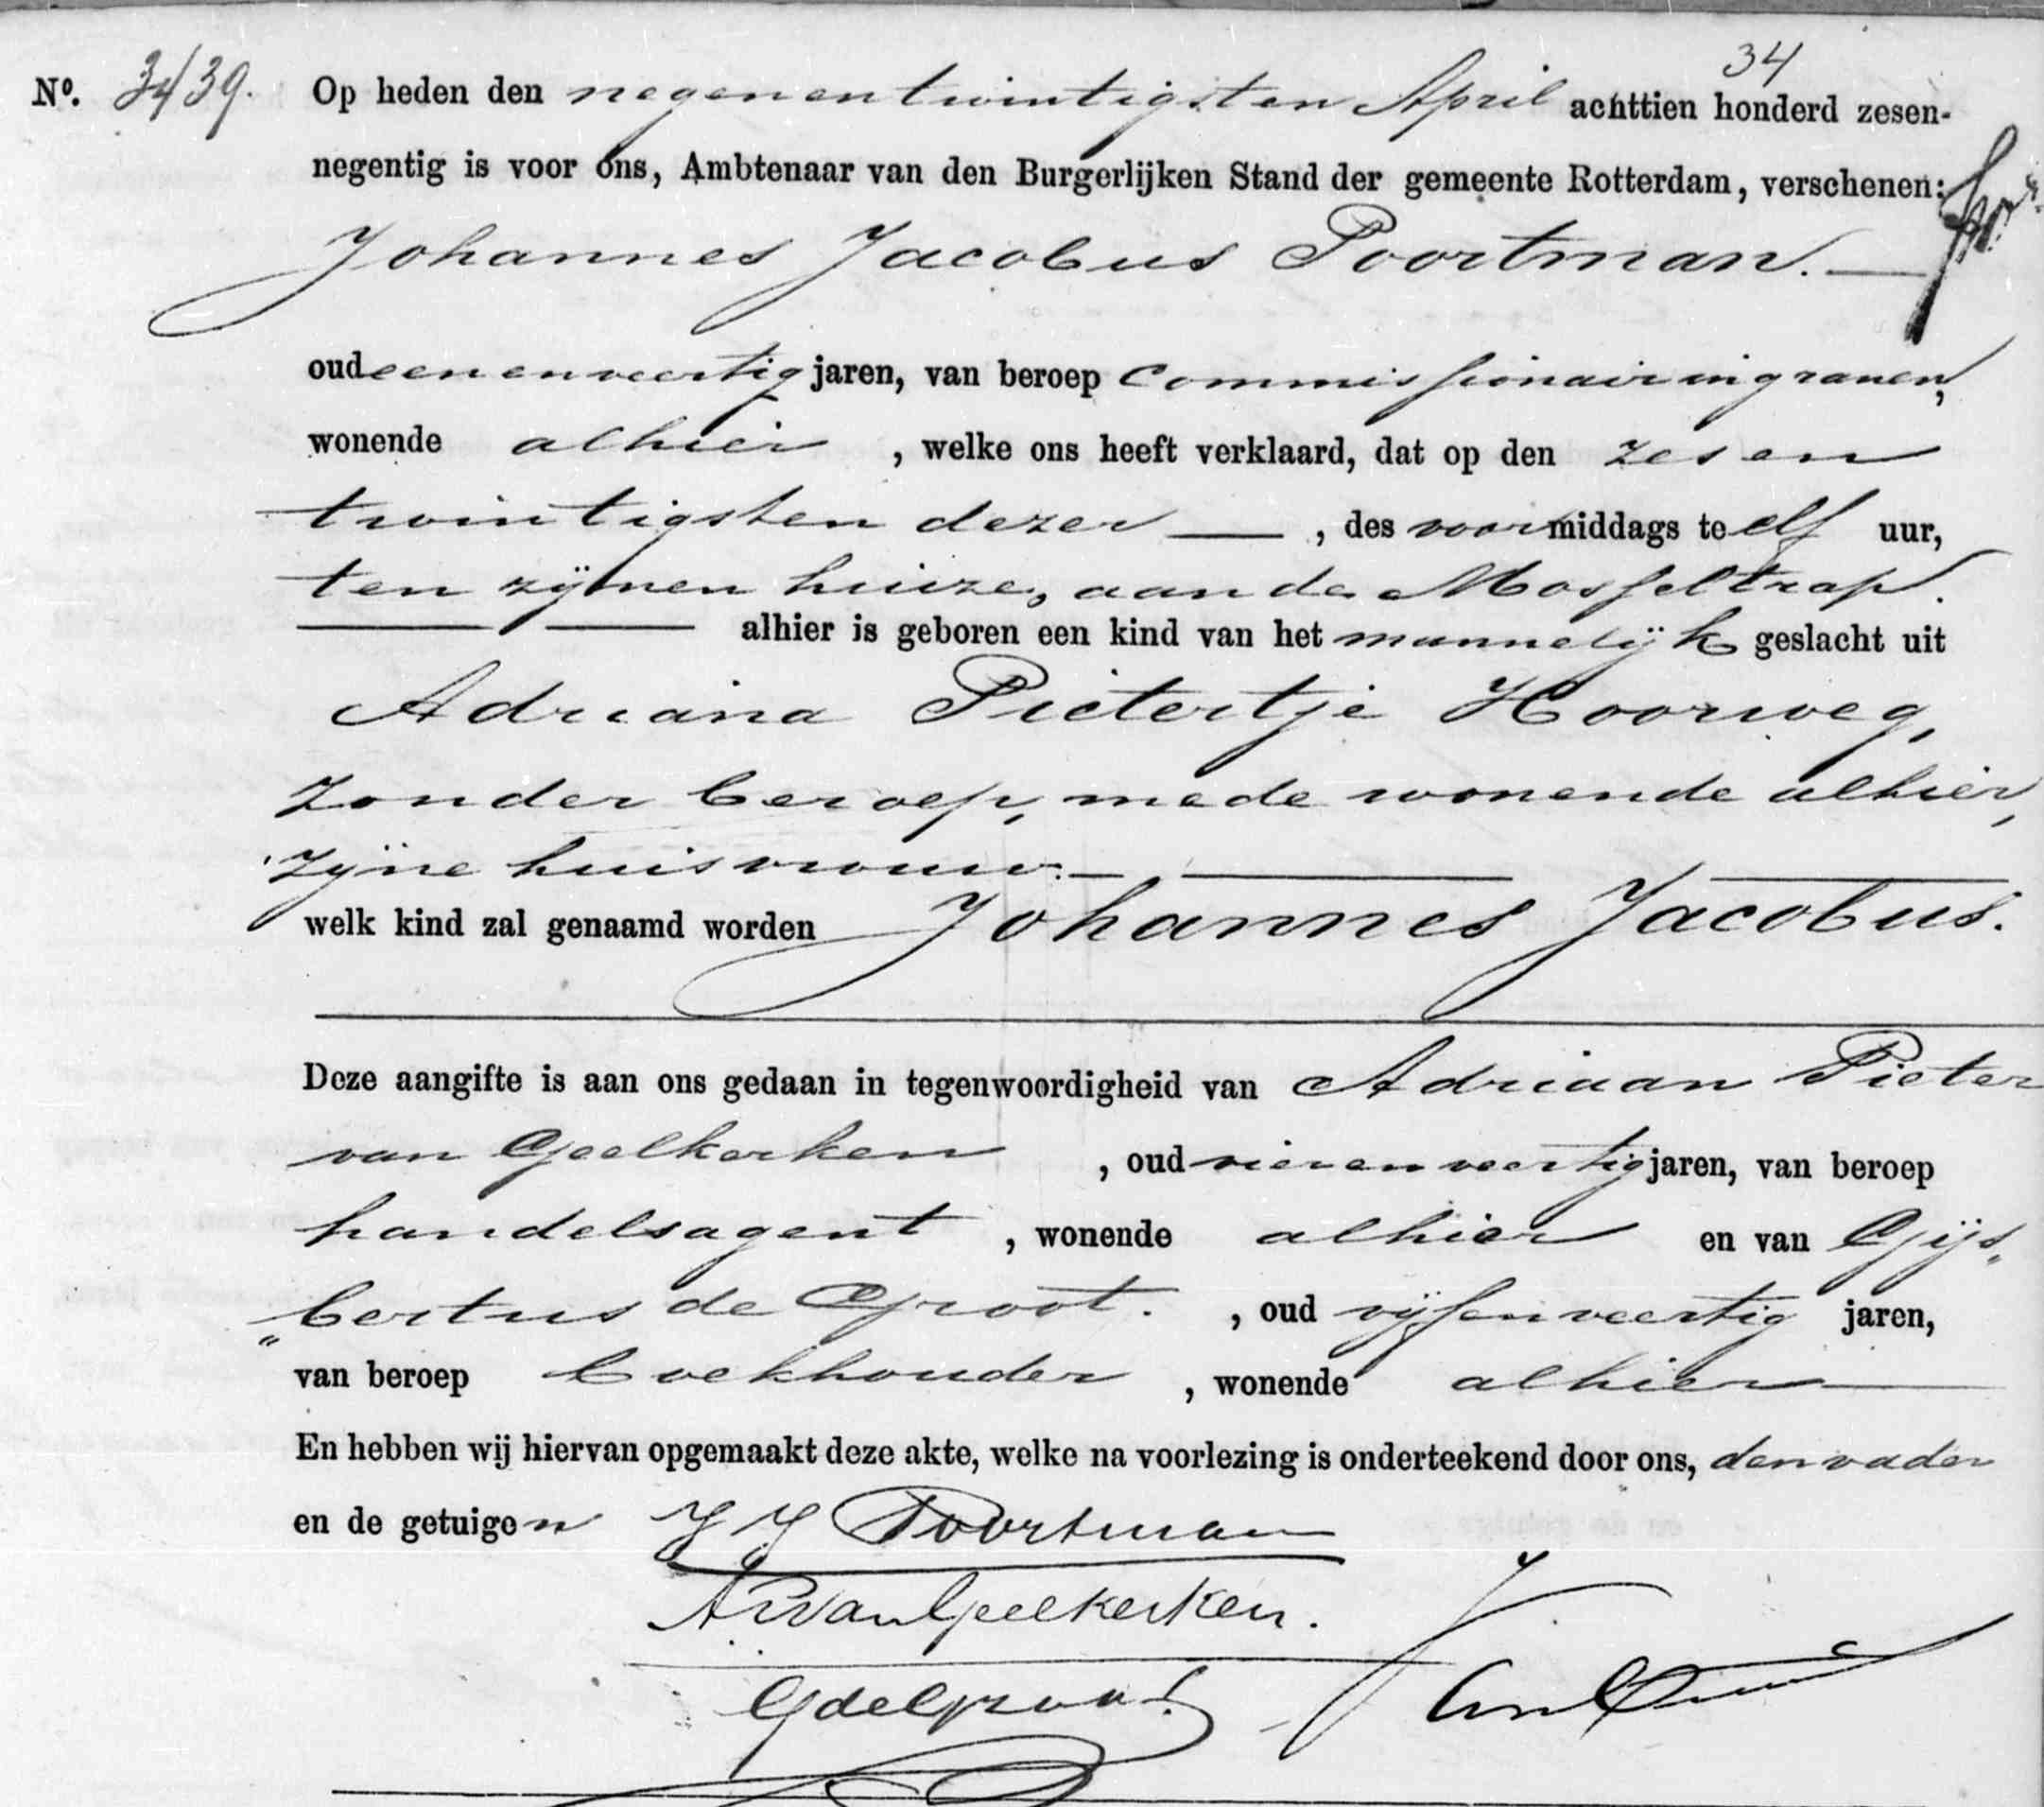 34
Nº. 3439. Op heden den negenentwintigsten April achttien honderd zesen-
negentig is voor ons, Ambtenaar van den Burgerlijken Stand der gemeente Rotterdam, verschenen:
Johannes Jacobus Poortman.
oud eenenveertig jaren, van beroep commissionair in granen,
wonende alhier, welke ons heeft verklaard, dat op den zesen
twintigsten dezer, des voormiddags te elf uur,
ten zijnen huize, aan de Mosseltrap.
alhier is geboren een kind van het mannelijk geslacht uit
Adriana Pietertje Hoorweg,
zonder beroep, mede wonende alhier,
zijne huisvrouw.
welk kind zal genaamd worden Johannes Jacobus.
Deze aangifte is aan ons gedaan in tegenwoordigheid van Adriaan Pieter
van Geelkerken, oud vierenveertig jaren, van beroep
handelsagent, wonende alhier en van Gijs„
„bertus de Groot., oud vijfenveertig jaren,
van beroep boekhouder, wonende alhier
En hebben wij hiervan opgemaakt deze akte, welke na voorlezing is onderteekend door ons, den vader
en de getuigen J J Poortman
A P Van Geelkerken.
G de Groot.